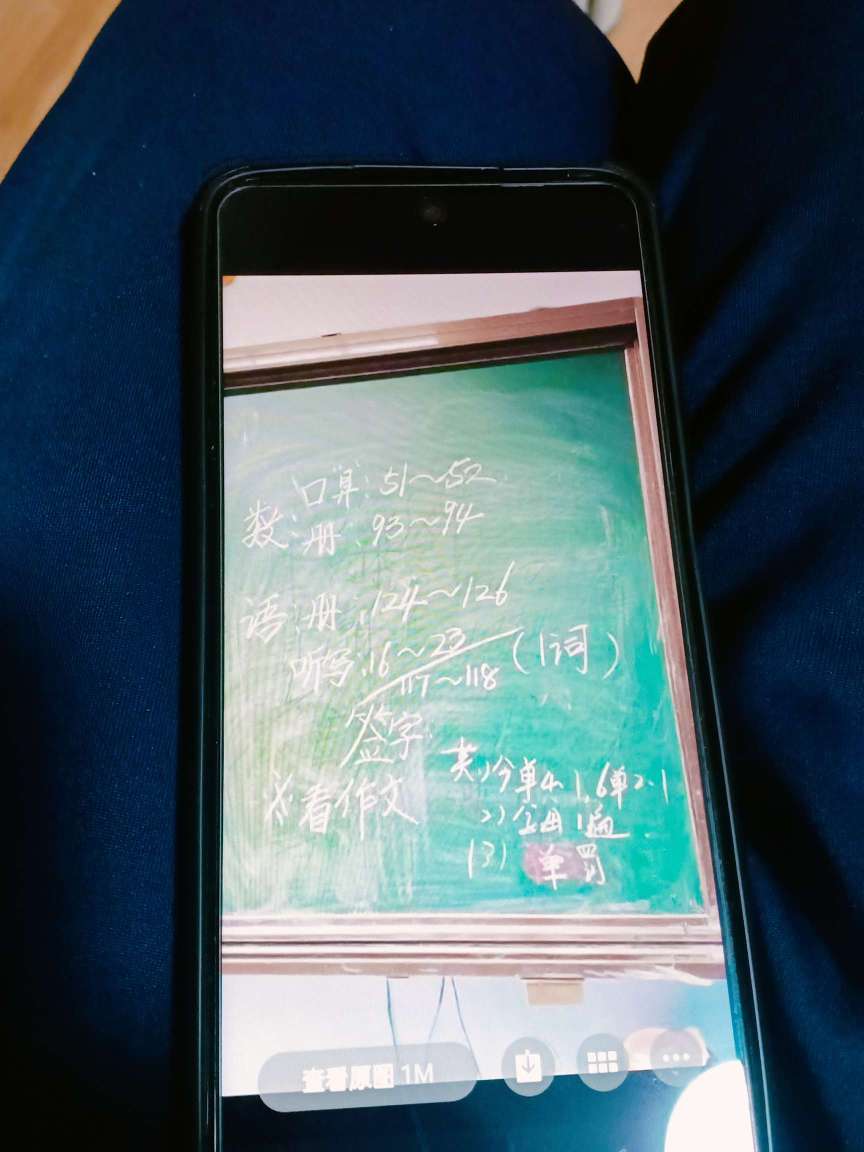 "口算": 51~52
数: 册: 93~94
语: 册: 124~126
听写: 16~23 (1词)
117~118
签字:
※看作文
英 1) 单 1, 6单2.1
2) 1遍
(3) 单罚
查看原图 1M